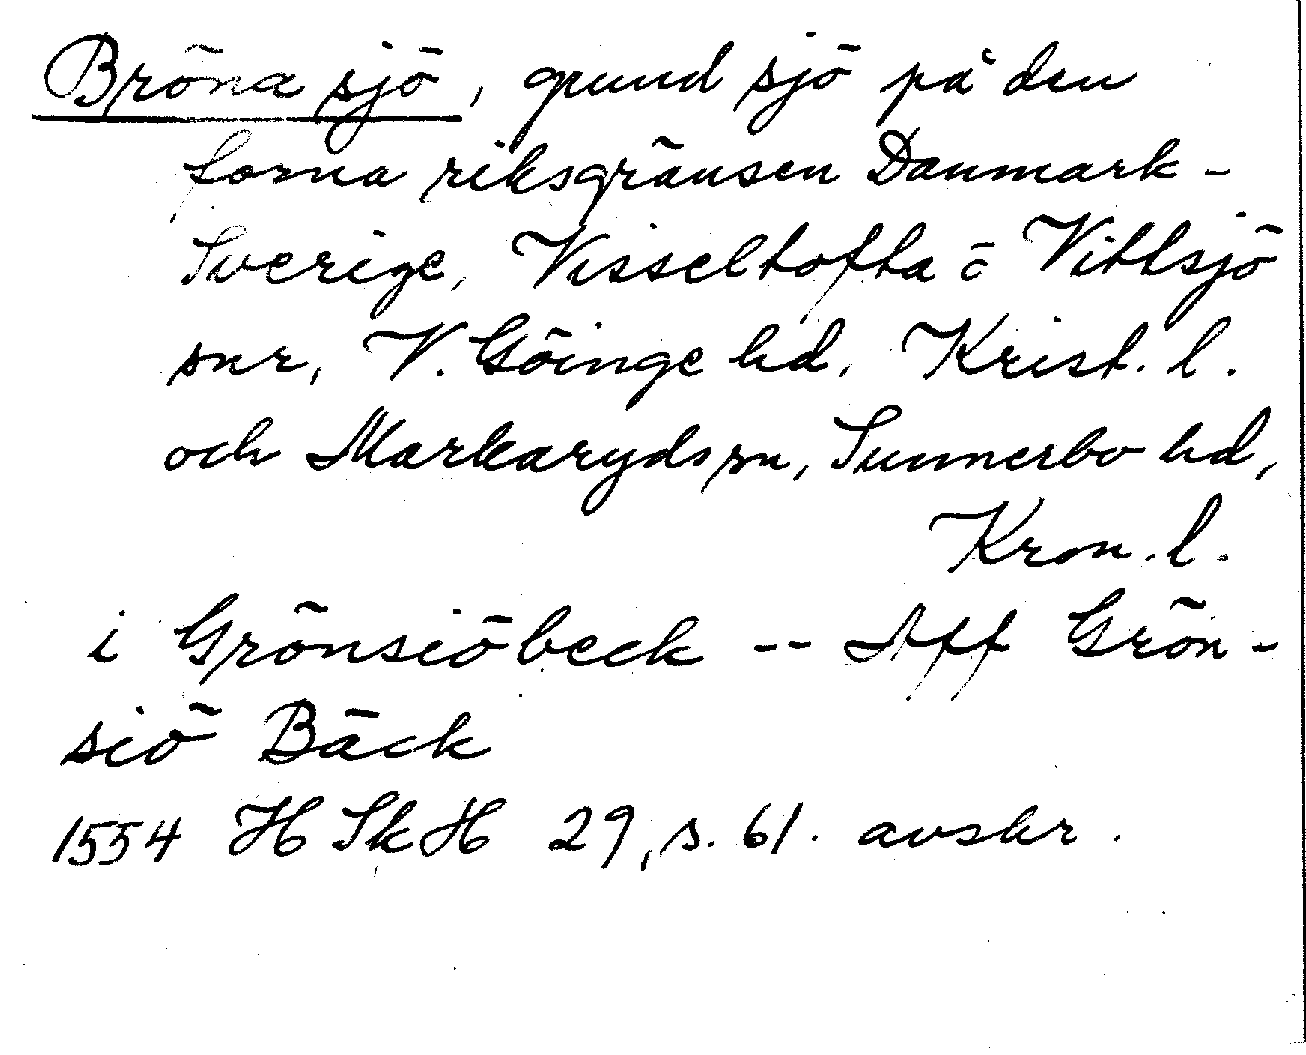 Bröna sjö, grund sjö på den
forna riksgränsen Danmark -
Sverige, Visseltofta o Vittsjö
snr, V. Göinge hd, Krist. l.
och Markaryds sn, Sunnerbo hd,
Kron. l.
i Grönsiöbeck -- Aff Grön-
siö Bäck
1554 HSkH 29, s. 61. avskr.